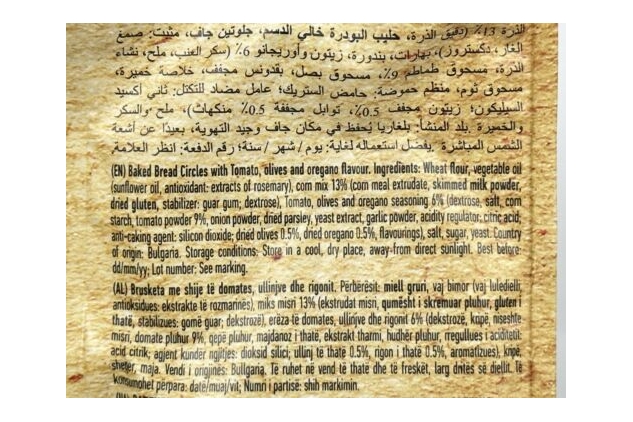 الذرة 13٪ (دقيق الذرة، حليب البودرة خالي الدسم، جلوتين جاف، مثبت: صمغ
الغار، دكستروز)، بهارات، بندورة، زيتون وأوريجانو 6٪ (سكر العنب، ملح، نشاء
الذرة، مسحوق طماطم 9٪، مسحوق بصل، بقدونس مجفف، خلاصة خميرة،
مسحوق ثوم، منظم حموضة: حامض الستريك؛ عامل مضاد للتكتل: ثاني أكسيد
السيليكون؛ زيتون مجفف 0.5٪، توابل مجففة 0.5٪ منكهات)، ملح والسكر
والخميرة. بلد المنشأ: بلغاريا يُحفظ في مكان جاف وجيد التهوية، بعيدًا عن أشعة
الشمس المباشرة. يفضل استعماله لغاية: يوم / شهر / سنة؛ رقم الدفعة: انظر العلامة.
(EN) Baked Bread Circles with Tomato, olives and oregano flavour. Ingredients: Wheat flour, vegetable oil
(sunflower oil, antioxidant: extracts of rosemary), corn mix 13% (corn meal extrudate, skimmed milk powder,
dried gluten, stabilizer: guar gum; dextrose), Tomato, olives and oregano seasoning 6% (dextrose, salt, corn
starch, tomato powder 9%, onion powder, dried parsley, yeast extract, garlic powder, acidity regulator: citric acid;
anti-caking agent: silicon dioxide; dried olives 0.5%, dried oregano 0.5%, flavourings), salt, sugar, yeast. Country
of origin: Bulgaria. Storage conditions: Store in a cool, dry place, away from direct sunlight. Best before:
dd/mm/yy; Lot number: See marking.
(AL) Brusketa me shije të domates, ullinjve dhe rigonit. Përbërësit: miell gruri, vaj bimor (vaj luledielli,
antioksidues: ekstrakte të rozmarinës), miks misri 13% (ekstrudat misri, qumësht i skremuar pluhur, gluten i
thatë, stabilizues: gomë guar; dekstrozë), erëza të domates, ullinjve dhe rigonit 6% (dekstrozë, kripë, niseshte
misri, domate pluhur 9%, qepë pluhur, majdanoz i thatë, ekstrakt tharmi, hudhër pluhur, rregullues i aciditetit:
acid citrik; agjent kundër ngjitjes: dioksid silici; ullinj të thatë 0.5%, rigon i thatë 0.5%, aromatizues), kripë,
sheqer, maja. Vendi i origjinës: Bullgaria. Të ruhet në vend të thatë dhe të freskët, larg dritës së diellit. Të
konsumohet përpara: datë/muaj/vit; Numri i partisë: shih markimin.